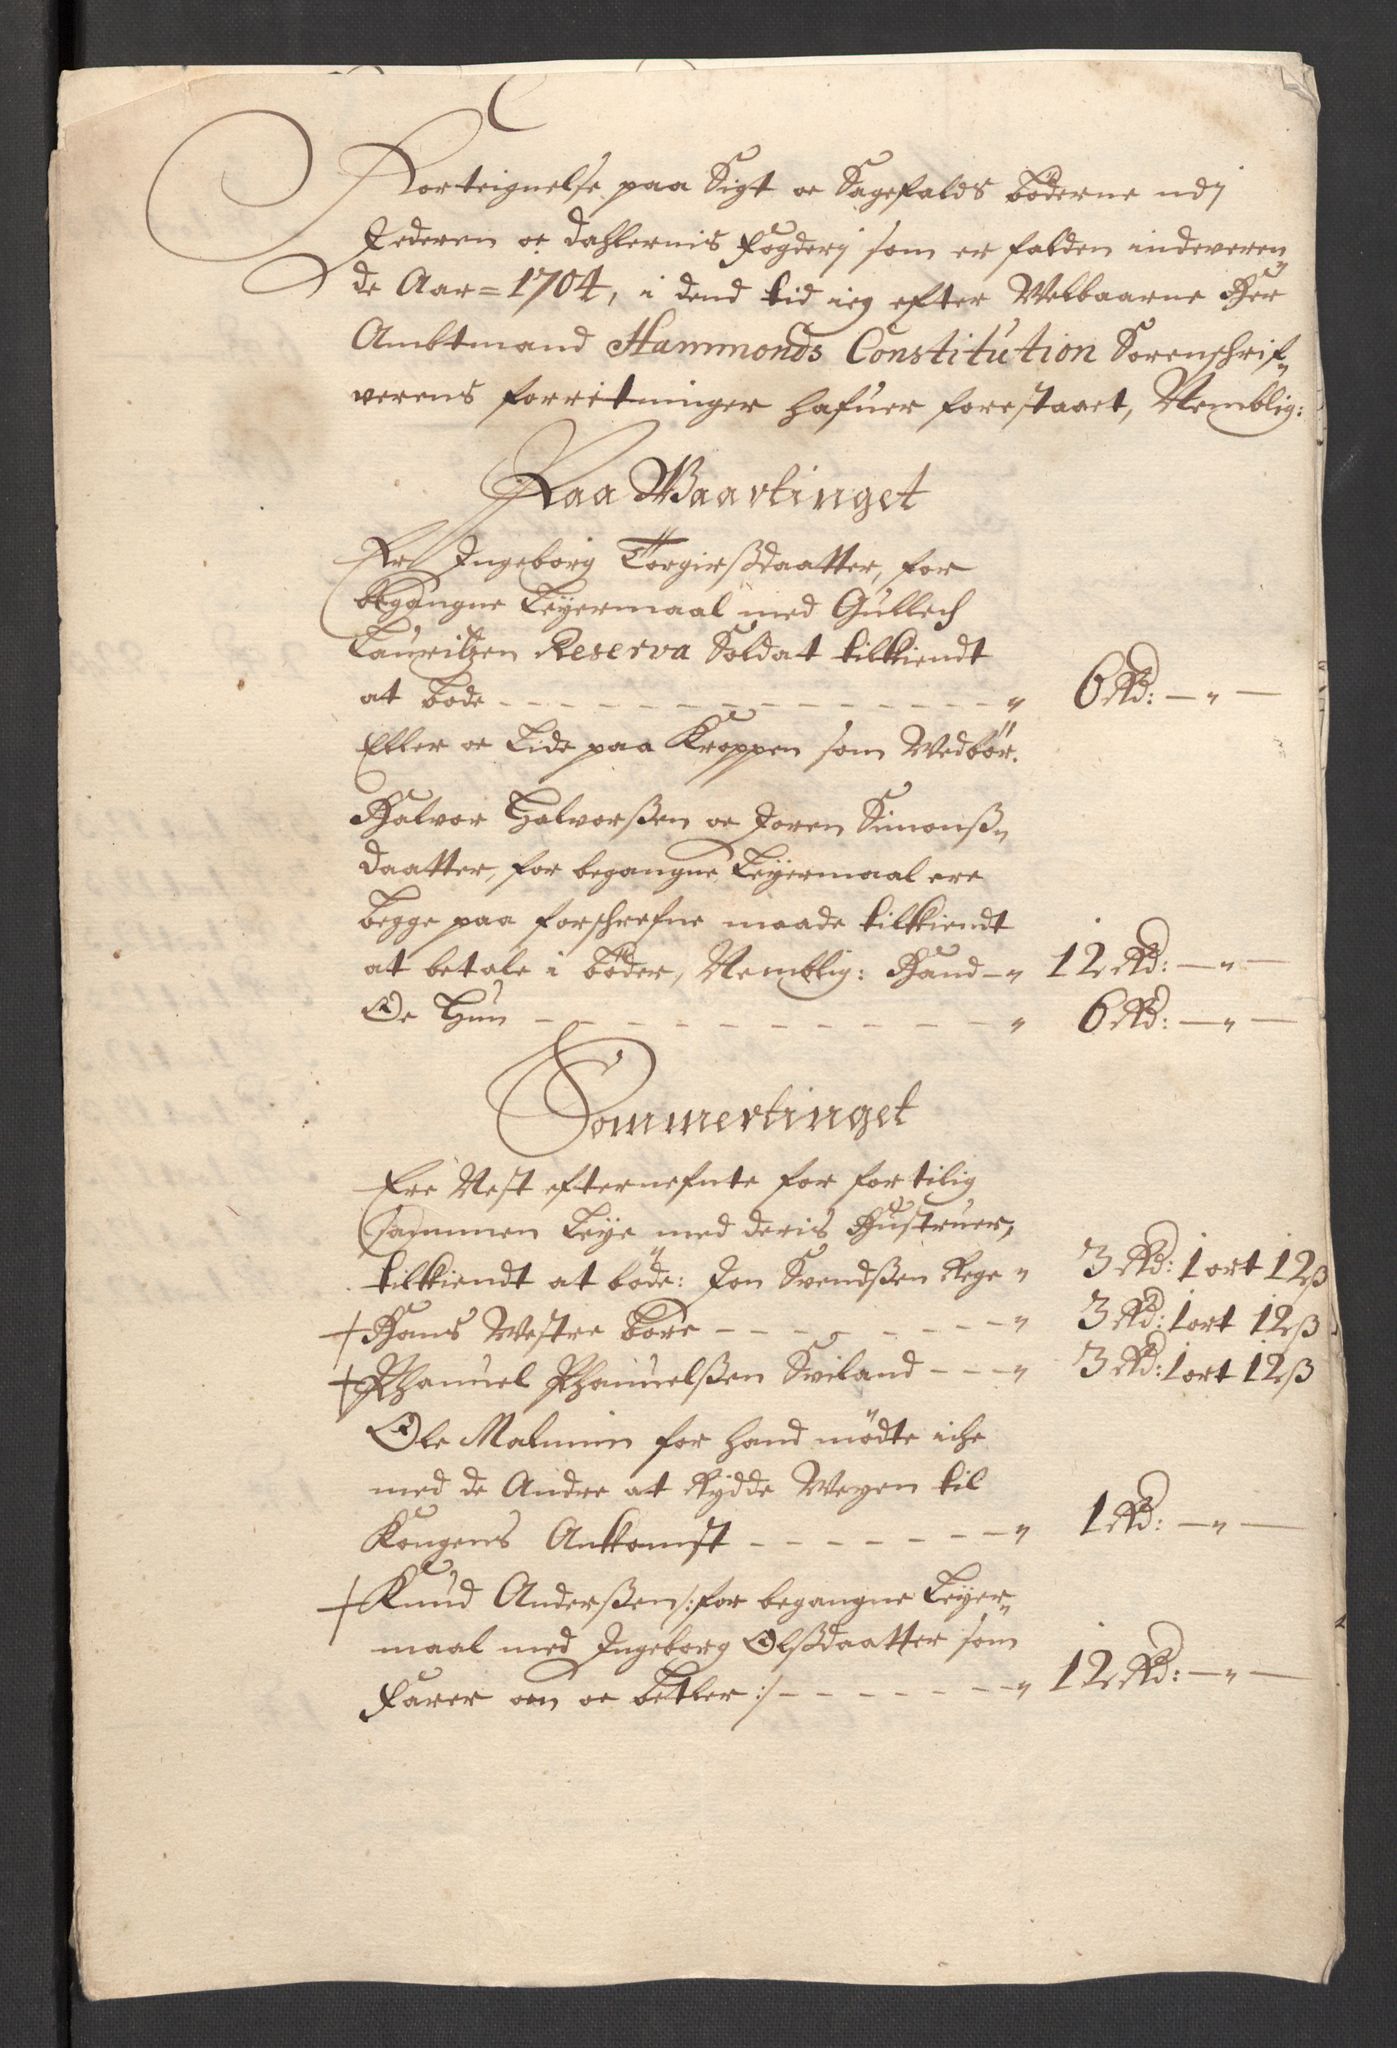 Forteignelse paa Sigt oc Sagefalds böderne udj
Jederen oc Dahlernis Fogderj som er falden indeveren„
de Aar = 1704, i dend tid ieg efter Welbaarne Her
Ambtmand Hammonds Constitution Sorenschrif„
verens forretninger hafuer forestaaet, Nemblig:
Paa Waartinget
Er Ingeborg Torgirßdaatter, for
begangne Leyermaal med Gullech
Lauritzen Reserva Soldat tilkiendt
at bøde - - - - - - - - „ 6 Rd: — „ —
Eller oc Lide paa Kroppen som Wedbör.
Halvor Halvorßen oc Joren Simonß„
daatter, for begangne Leyermaal ere
begge paa forschrefne maade tilkiendt
at betale i böder, Nemblig: Hand - „ 12 Rd: — „ —
Oc Hun - - - - - - - - „ 6 Rd: — „ —
Sommertinget
Ere Nest efternefnte for for tilig
sammen Leye med deris Hustruer,
tilkiendt at böde: Jon Svendßen Rege „ 3 Rd: 1 ort 12 ß
Hans Westre Bore - - - - - - „ 3 Rd: 1 ort 12 ß
Phanuel Phanuelßen Sviland - - - „ 3 Rd: 1 ort 12 ß
Ole Malmim for hand mödte iche
med de Andre at Rydde Weyen til
Kongens Ankomst - - - - - - „ 1 Rd: — „ —
Knud Anderßen /: for begangne Leyer„
maal med Ingeborg Olßdaatter som
Farer om oc betler :/ - - - - - - „ 12 Rd: — „ —